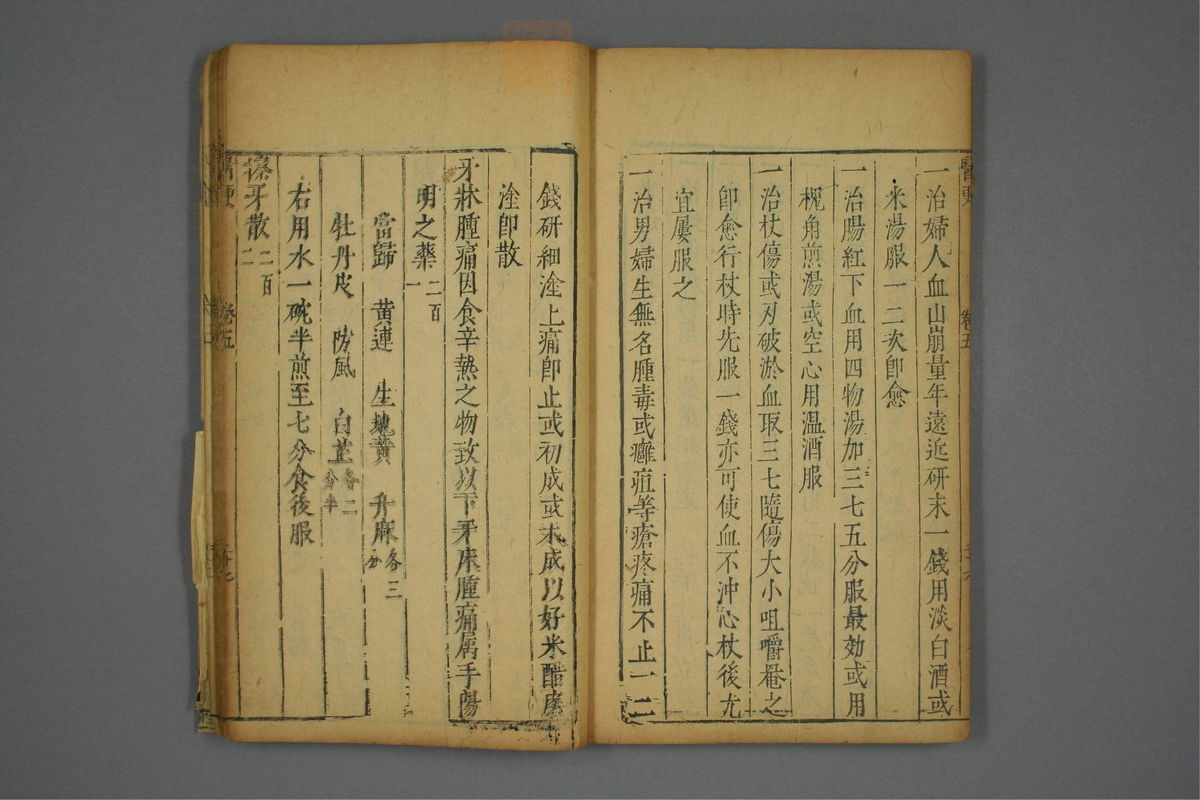 醫便
卷五
一治婦人血山崩量年遠近研末一錢用淡白酒或
米湯服一二次卽愈
一治腸紅下血用四物湯加三七五分服最効或用
槐角煎湯或空心用温酒服
一治杖傷或刃破淤血取三七隨傷大小咀嚼罨之
卽愈行杖時先服一錢亦可使血不沖心杖後尤
宜屢服之
一治男婦生無名腫毒或癰疽等瘡疼痛不止一二
錢研細塗上痛卽止或初成或未成以好米醋磨
塗卽散
牙牀腫痛因食辛熱之物致以下牙床腫痛属手陽
明之藥 二百一
當歸 黄連 生地黄 升麻各三分
牡丹皮 防風 白芷各二分半
右用水一碗半煎至七分食後服
搽牙散 二百二
醫便
卷五